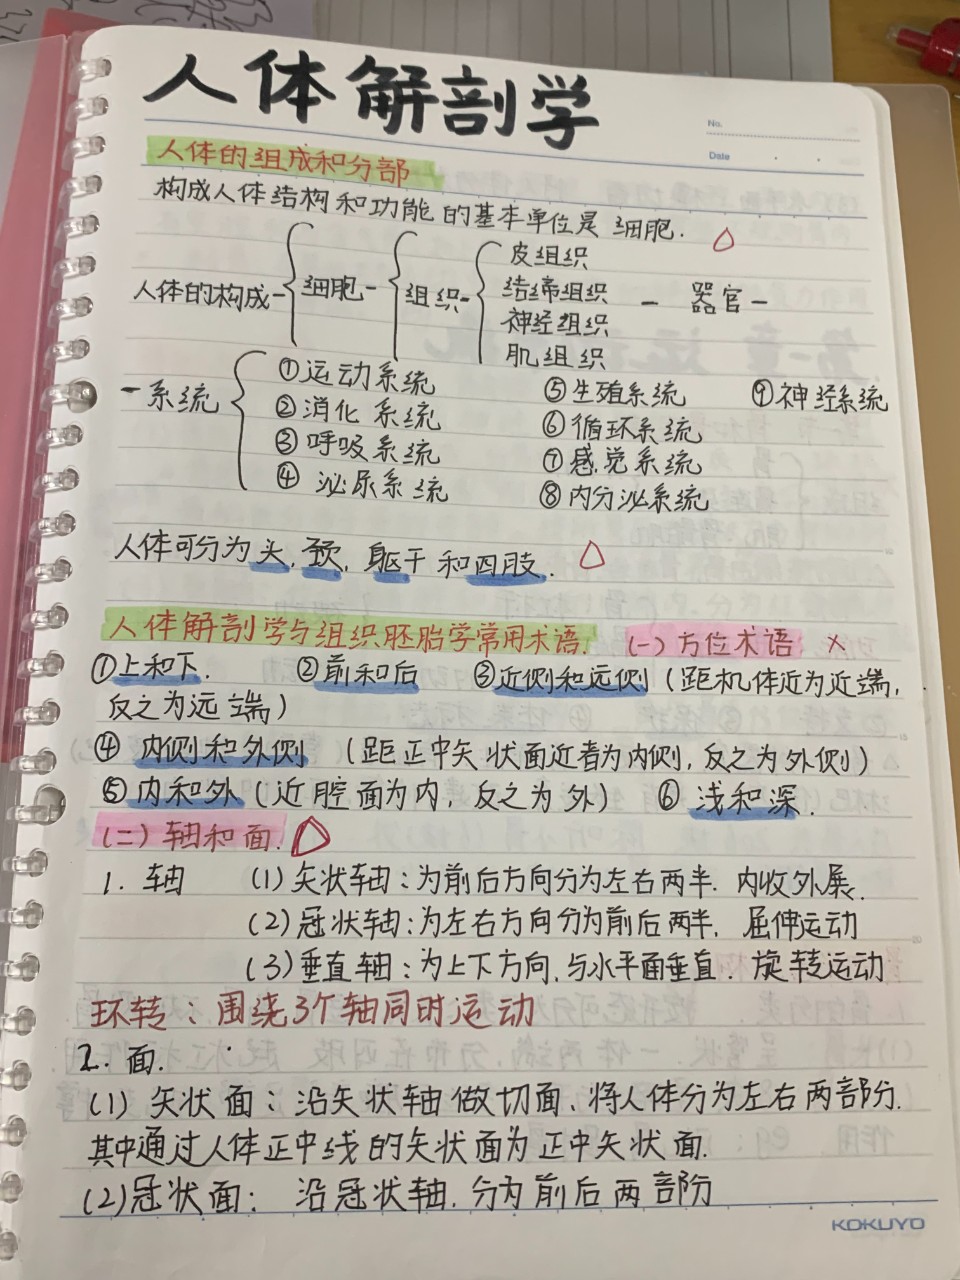 人体解剖学
No.
Date
人体的组成和分部
构成人体结构和功能的基本单位是细胞.
人体的构成-细胞-组织-皮组织
结缔组织 - 器官 -
神经组织
肌组织
-系统 ①运动系统 ⑤生殖系统 ⑨神经系统
②消化系统 ⑥循环系统
③呼吸系统 ⑦感觉系统
④泌尿系统 ⑧内分泌系统
人体可分为头,颈,躯干和四肢.
人体解剖学与组织胚胎学常用术语. (一)方位术语 ×
①上和下. ②前和后 ③近侧和远侧(距机体近为近端,
反之为远端)
④内侧和外侧 (距正中矢状面近者为内侧,反之为外侧)
⑤内和外(近腔面为内,反之为外) ⑥浅和深.
(二)轴和面.
1. 轴 (1)矢状轴:为前后方向分为左右两半. 内收外展.
(2)冠状轴:为左右方向分为前后两半, 屈伸运动
(3)垂直轴:为上下方向,与水平面垂直. 旋转运动
环转:围绕3个轴同时运动
2. 面.
(1)矢状面:沿矢状轴做切面、将人体分为左右两部分.
其中通过人体正中线的矢状面为正中矢状面.
(2)冠状面: 沿冠状轴.分为前后两部分
KOKUYO